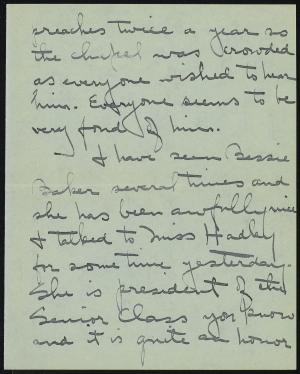 preaches twice a year so
the chapel was crowded
as everyone wished to hear
him. Everyone seems to be
very fond of him.
I have seen Bessie
Baker several times and
she has been awfully nice
I talked to Miss Hadley
for some time yesterday.
She is president of the
Senior Class you know
and it is quite an honor